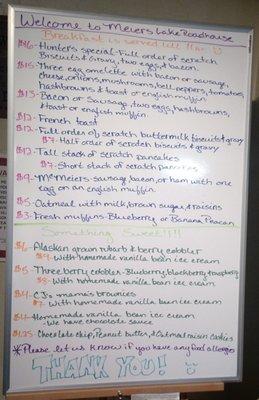 Welcome to Meiers Lake Roadhouse
Breakfast is served till 11am
$16- Hunters special-Full order of scratch
Biscuits & Gravy, two eggs, & bacon
$15- Three egg omelette with bacon or sausage,
cheese, onions, mushrooms, bell peppers, tomatoes,
hashbrowns & toast or english muffin
$13- Bacon or Sausage, two eggs, hashbrowns,
& toast or english muffin
$12- French toast
$12- Full order of scratch buttermilk biscuits & gravy
$7- Half order of scratch biscuits & gravy
$12- Tall stack of scratch pancakes
$7- Short stack of scratch pancakes
$9- McMeiers-sausage, bacon, or ham with one
egg on an english muffin
$5- Oatmeal with milk, brown sugar, & raisins
$3- Fresh muffins-Blueberry or Banana Peacan
Something Sweet!!!!
$6- Alaskan grown rubarb & berry cobbler
$9- With homemade vanilla bean ice cream
$5- Three berry cobbler-Blueberry, blackberry & raspberry
$8- With homemade vanilla bean ice cream
$4- CJ's mama's brownies
$7- With homemade vanilla bean ice cream
$4- Homemade vanilla bean ice cream
-We have chocolate sauce
$1.25- Chocolate chip, Peanut butter, & Oatmeal raisin cookies
*Please let us know if you have any food allergies
THANK YOU!